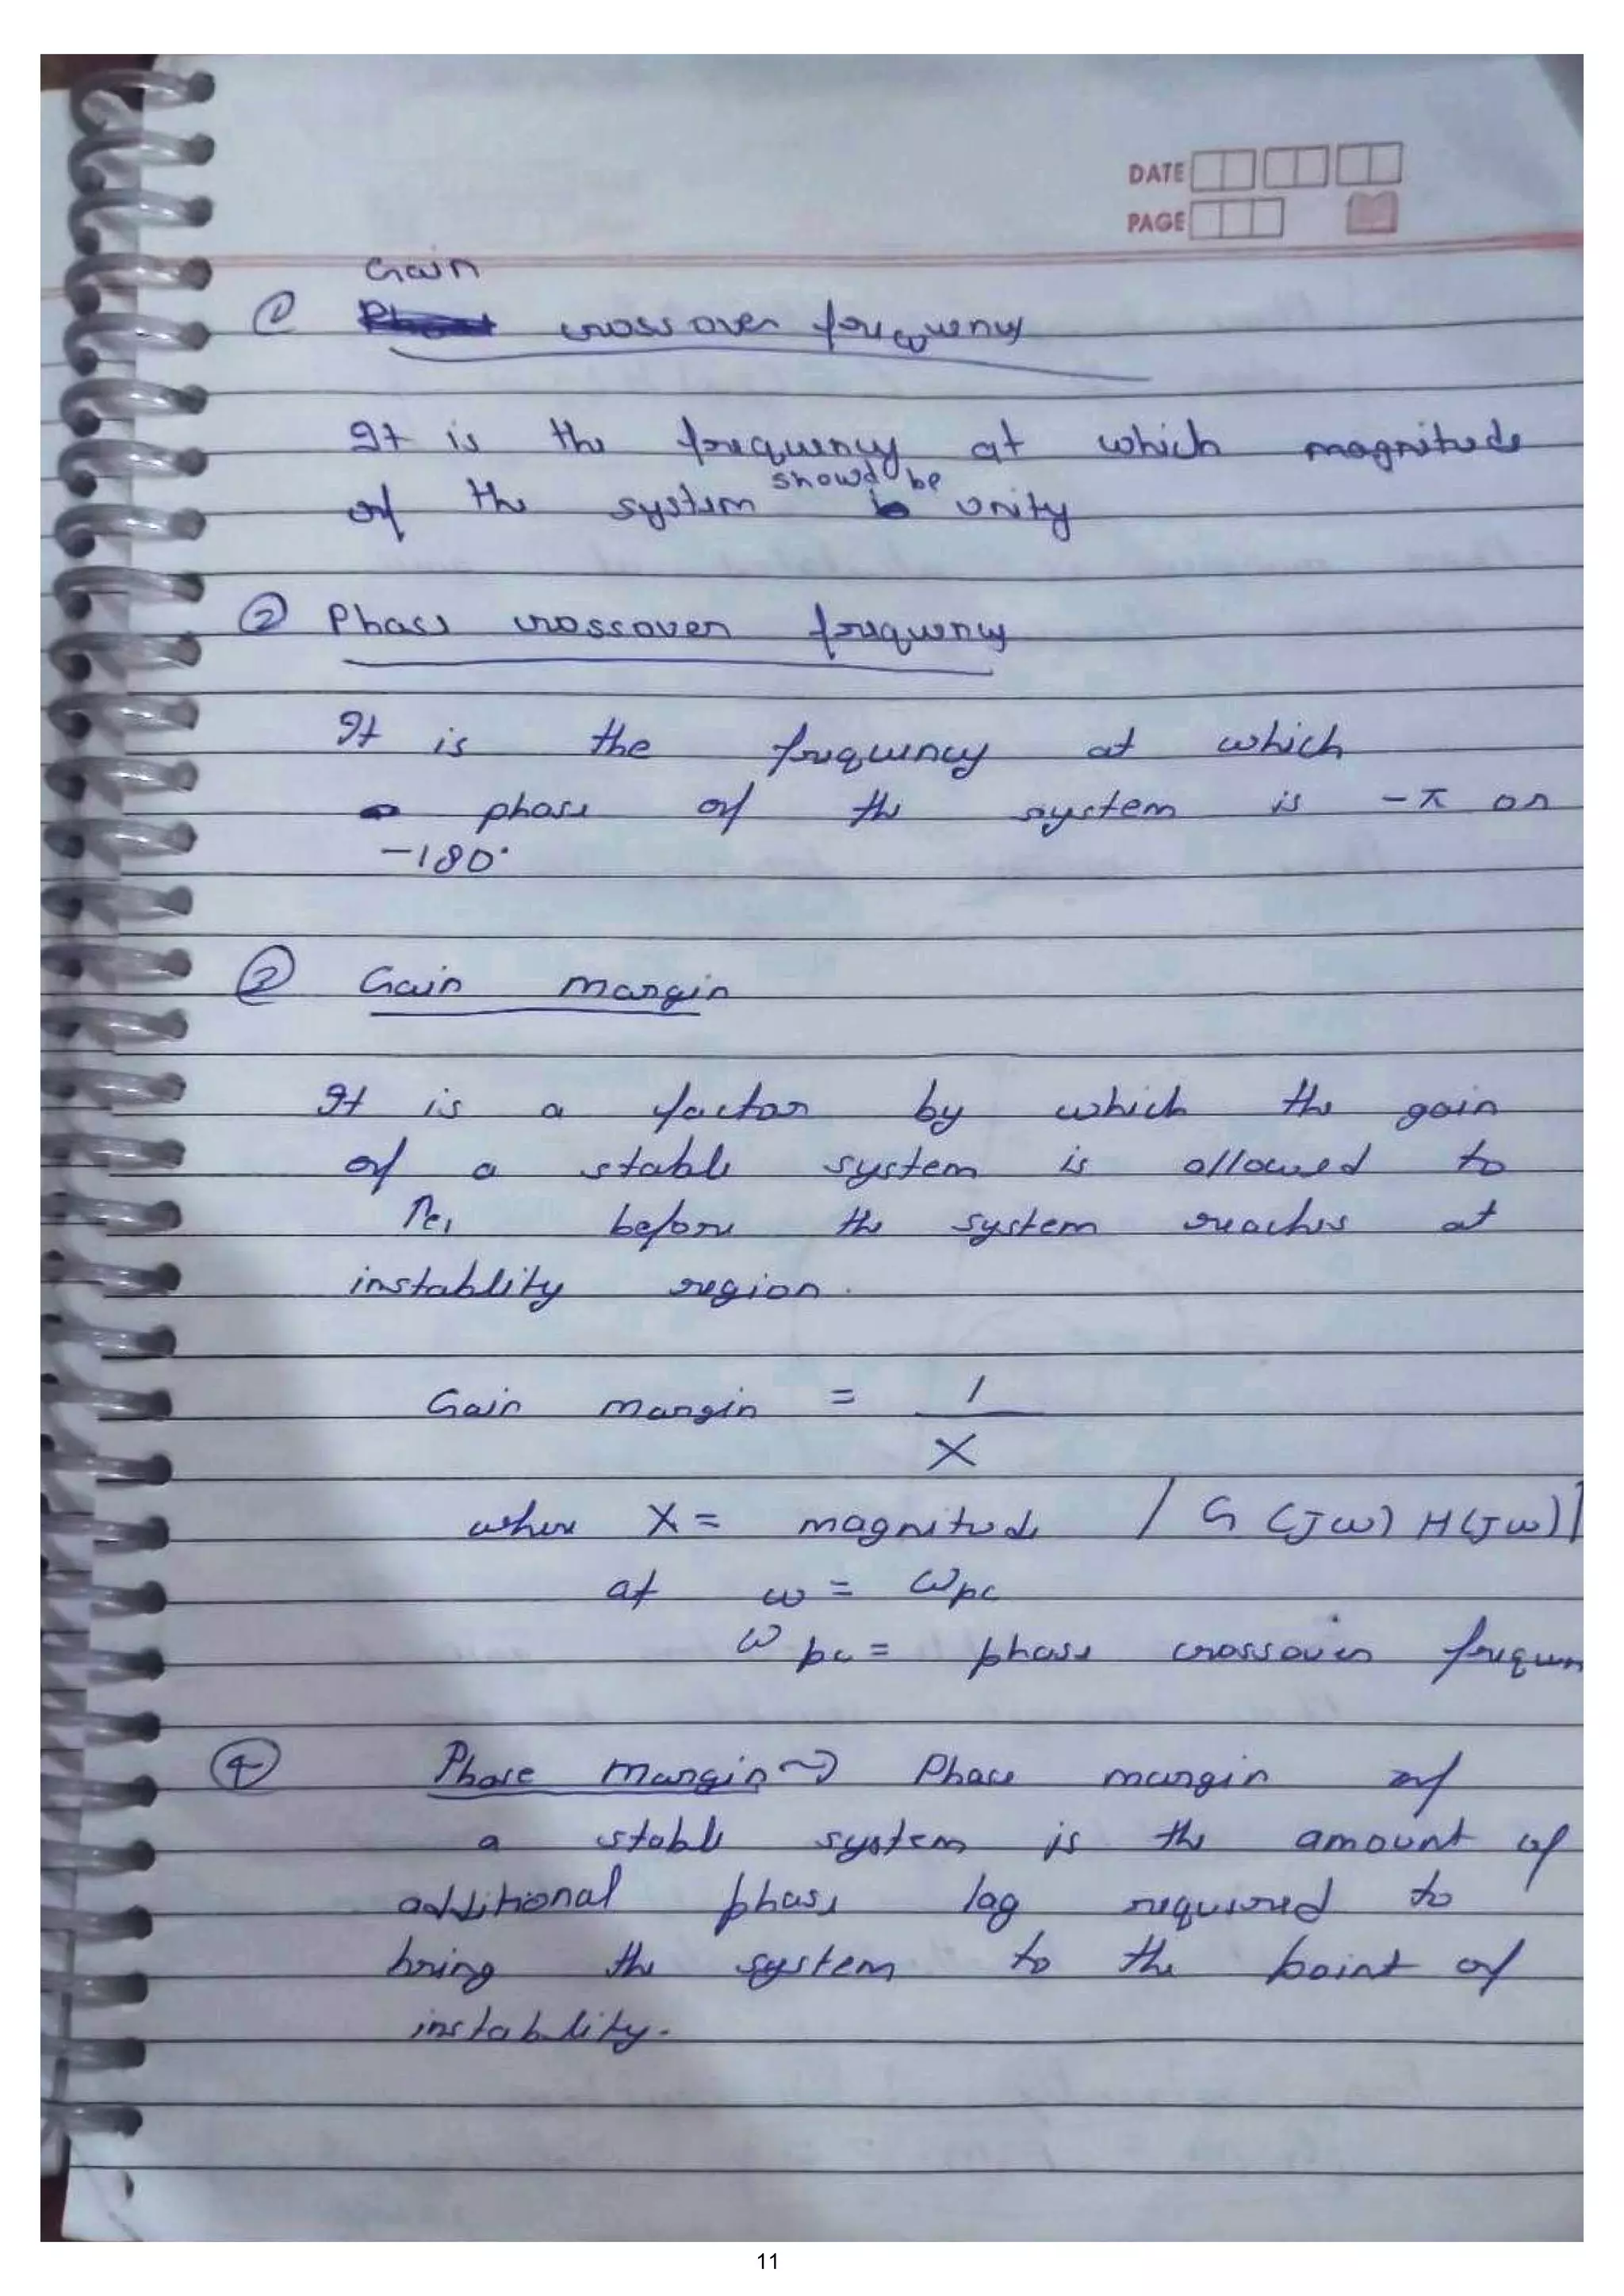 DATE
PAGE
Gain
① crossover frequency
It is the frequency at which magnitude
should be
of the system unity
② Phase crossover frequency
It is the frequency at which
phase of the system is -π or
-180°
② Gain margin
It is a factor by which the gain
of a stable system is allowed to
before the system reaches at
instablity region.
Gain margin = 1
X
where X = magnitude | G (jω) H(jω)|
at ω = ωpc
ωpc = phase crossover frequen
④ Phase margin → Phase margin of
a stable system is the amount of
additional phase lag required to
bring the system to the point of
instablity.
11